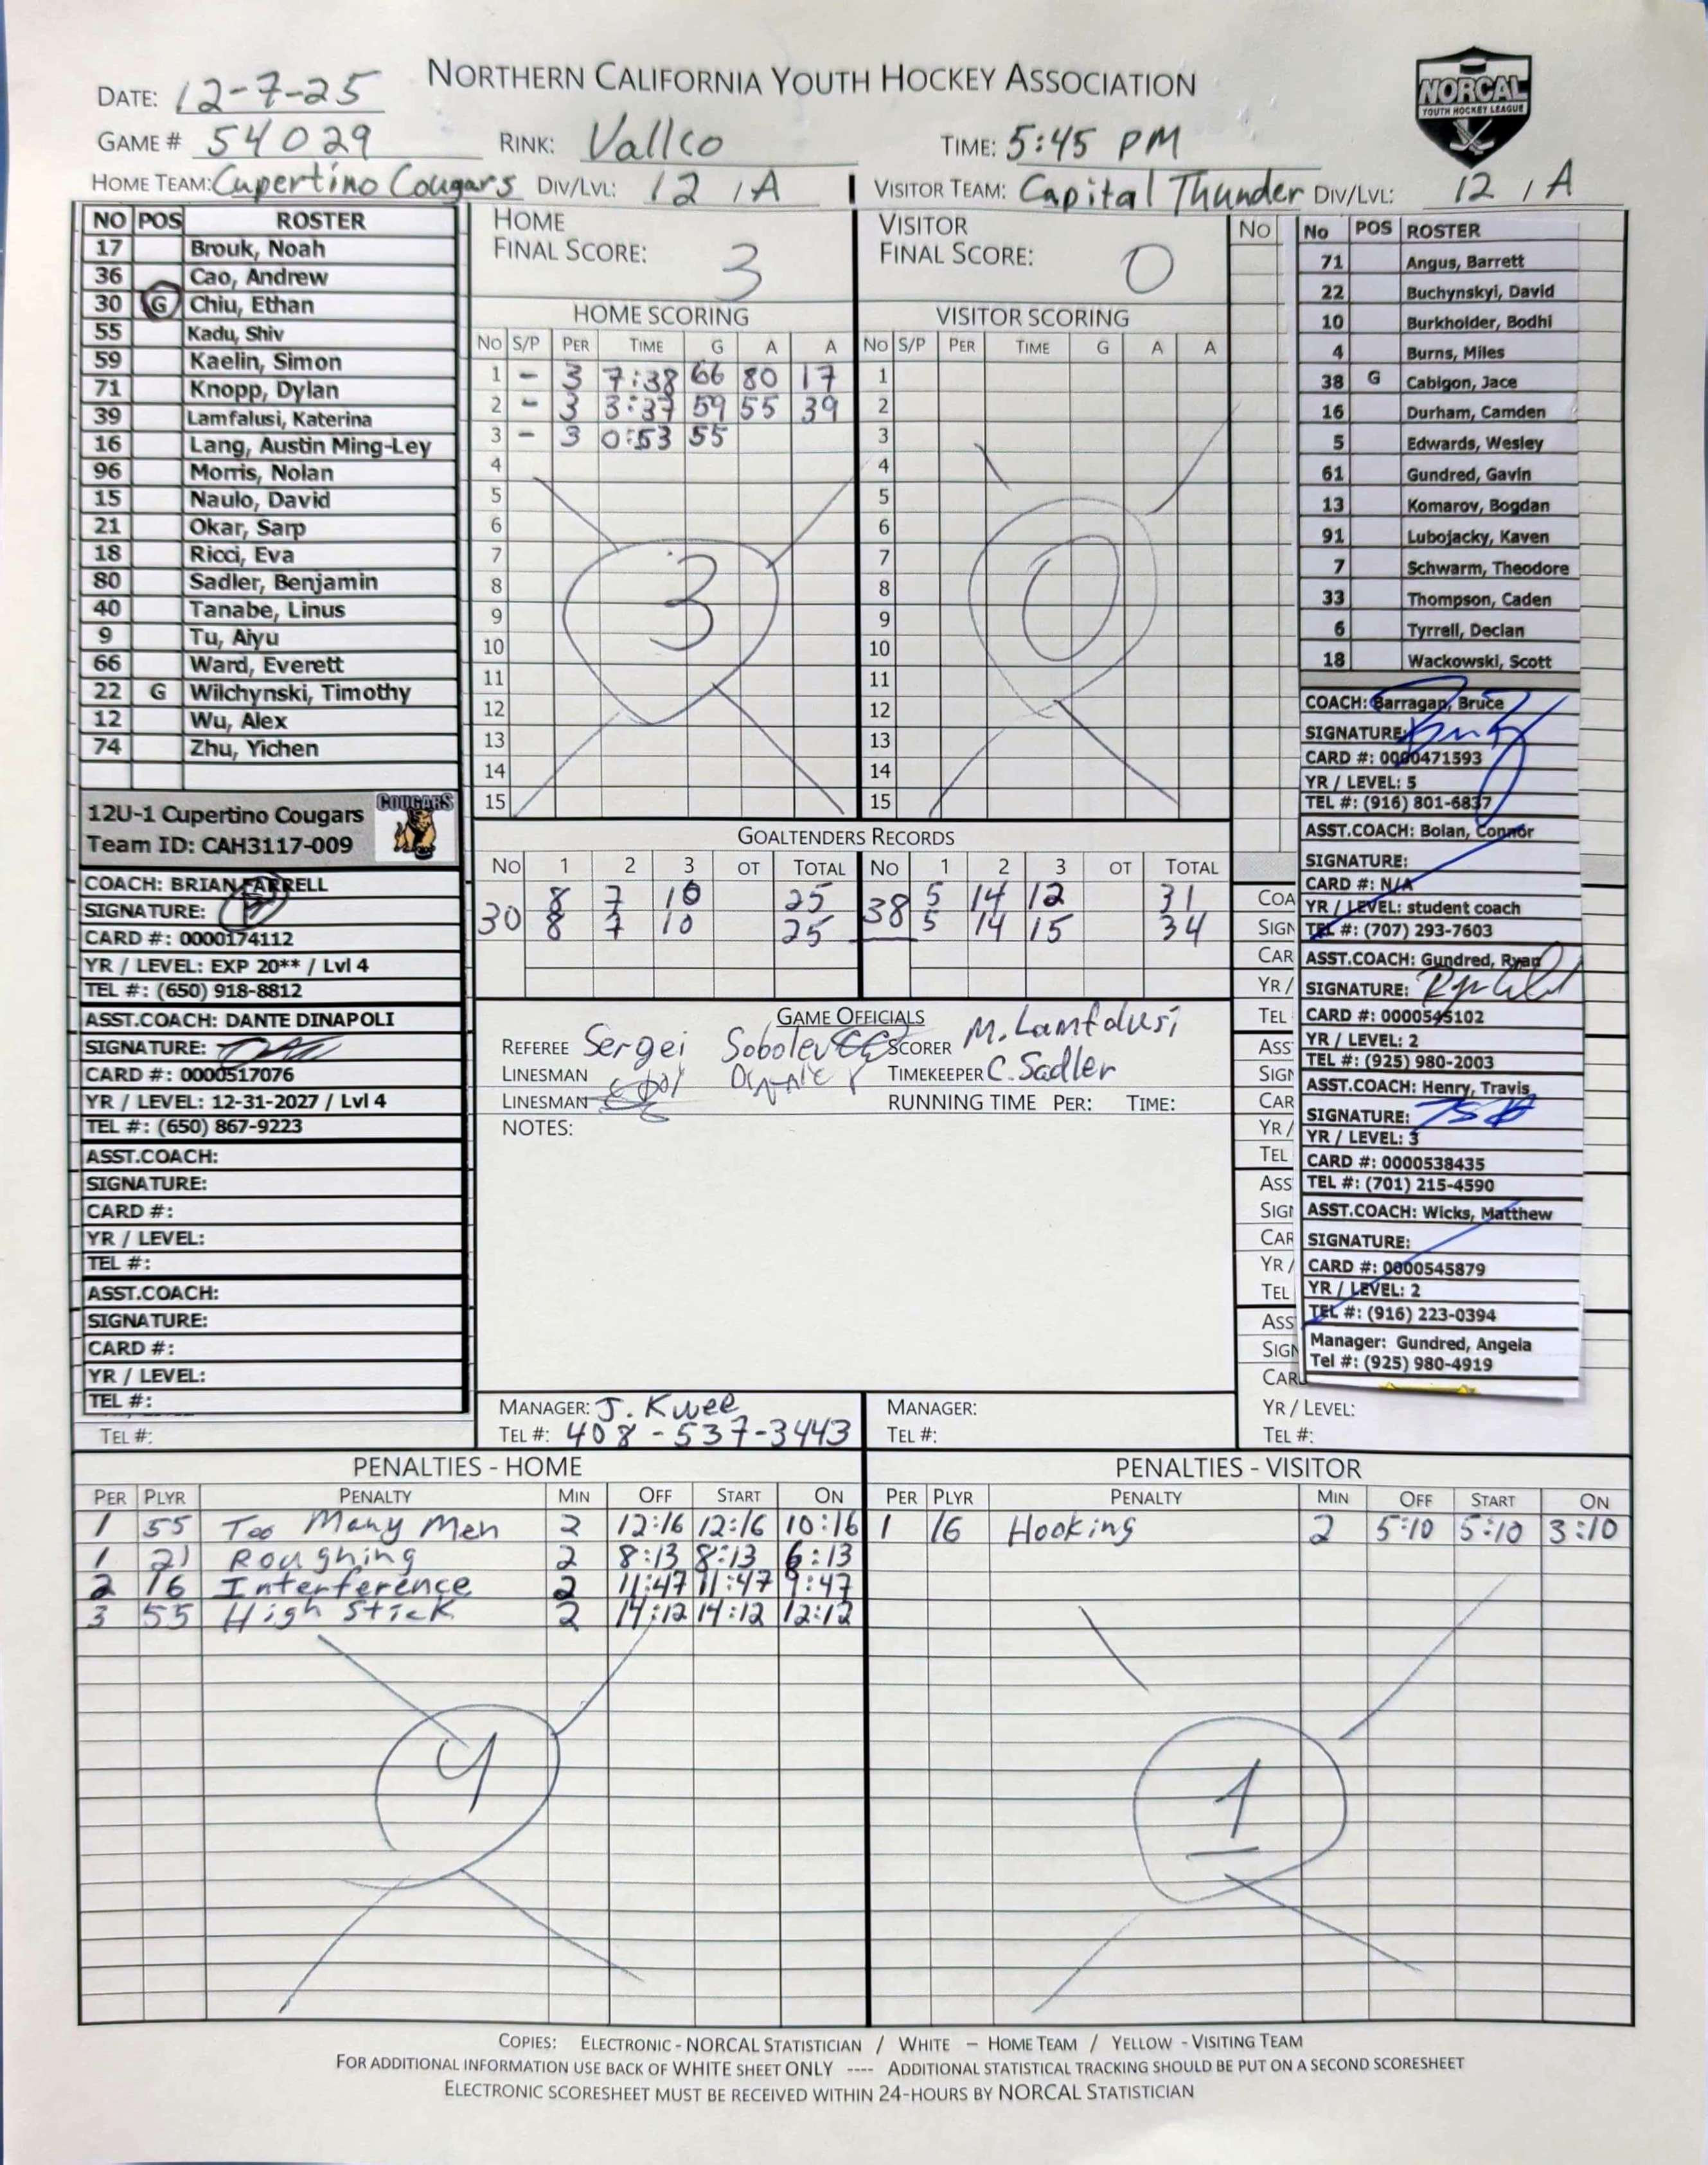 NORTHERN CALIFORNIA YOUTH HOCKEY ASSOCIATION
NORCAL
YOUTH HOCKEY LEAGUE
DATE: 12-7-25
GAME # 54029 RINK: Vallco TIME: 5:45 PM
HOME TEAM: Cupertino Cougars DIV/LVL: 12 / A VISITOR TEAM: Capital Thunder DIV/LVL: 12 / A
NO POS ROSTER
17 Brouk, Noah
36 Cao, Andrew
30 G Chiu, Ethan
55 Kadu, Shiv
59 Kaelin, Simon
71 Knopp, Dylan
39 Lamfalusi, Katerina
16 Lang, Austin Ming-Ley
96 Morris, Nolan
15 Naulo, David
21 Okar, Sarp
18 Ricci, Eva
80 Sadler, Benjamin
40 Tanabe, Linus
9 Tu, Aiyu
66 Ward, Everett
22 G Wilchynski, Timothy
12 Wu, Alex
74 Zhu, Yichen
12U-1 Cupertino Cougars
Team ID: CAH3117-009
COUGARS
COACH: BRIAN FARRELL
SIGNATURE:
CARD #: 0000174112
YR / LEVEL: EXP 20** / Lvl 4
TEL #: (650) 918-8812
ASST.COACH: DANTE DINAPOLI
SIGNATURE:
CARD #: 0000517076
YR / LEVEL: 12-31-2027 / Lvl 4
TEL #: (650) 867-9223
ASST.COACH:
SIGNATURE:
CARD #:
YR / LEVEL:
TEL #:
ASST.COACH:
SIGNATURE:
CARD #:
YR / LEVEL:
TEL #:
TEL #:
HOME
FINAL SCORE: 3
HOME SCORING
NO S/P PER TIME G A A
1 - 3 7:38 66 80 17
2 - 3 3:37 59 55 39
3 - 3 0:53 55
4
5
6
7
8
9
10
11
12
13
14
15
3
VISITOR
FINAL SCORE: 0
VISITOR SCORING
NO S/P PER TIME G A A
1
2
3
4
5
6
7
8
9
10
11
12
13
14
15
0
GOALTENDERS RECORDS
NO 1 2 3 OT TOTAL NO 1 2 3 OT TOTAL
30 8 7 10 25 38 5 14 12 31
8 7 10 25 5 14 15 34
GAME OFFICIALS
REFEREE Sergei Sobolev SCORER M. Lamfalusi
LINESMAN TIMEKEEPER C. Sadler
LINESMAN RUNNING TIME PER: TIME:
NOTES:
MANAGER: J. Kwee
TEL #: 408-537-3443
MANAGER:
TEL #:
NO
No POS ROSTER
71 Angus, Barrett
22 Buchynskyi, David
10 Burkholder, Bodhi
4 Burns, Miles
38 G Cabigon, Jace
16 Durham, Camden
5 Edwards, Wesley
61 Gundred, Gavin
13 Komarov, Bogdan
91 Lubojacky, Kaven
7 Schwarm, Theodore
33 Thompson, Caden
6 Tyrrell, Declan
18 Wackowski, Scott
COACH: Barragan, Bruce
SIGNATURE:
CARD #: 0000471593
YR / LEVEL: 5
TEL #: (916) 801-6837
ASST.COACH: Bolan, Connor
SIGNATURE:
CARD #: N/A
YR / LEVEL: student coach
TEL #: (707) 293-7603
ASST.COACH: Gundred, Ryan
SIGNATURE:
CARD #: 0000545102
YR / LEVEL: 2
TEL #: (925) 980-2003
ASST.COACH: Henry, Travis
SIGNATURE:
YR / LEVEL: 3
CARD #: 0000538435
TEL #: (701) 215-4590
ASST.COACH: Wicks, Matthew
SIGNATURE:
CARD #: 0000545879
YR / LEVEL: 2
TEL #: (916) 223-0394
Manager: Gundred, Angela
Tel #: (925) 980-4919
COA
SIGN
CAR
YR /
TEL
ASS
SIGN
CAR
YR /
TEL
ASS
SIGN
CAR
YR /
TEL
ASS
SIGN
CAR
YR / LEVEL:
TEL #:
PENALTIES - HOME
PER PLYR PENALTY MIN OFF START ON
1 55 Too Many Men 2 12:16 12:16 10:16
1 21 Roughing 2 8:13 8:13 6:13
2 16 Interference 2 11:47 11:47 9:47
3 55 High Stick 2 14:12 14:12 12:12
4
PENALTIES - VISITOR
PER PLYR PENALTY MIN OFF START ON
1 16 Hooking 2 5:10 5:10 3:10
1
COPIES: ELECTRONIC - NORCAL STATISTICIAN / WHITE – HOME TEAM / YELLOW - VISITING TEAM
FOR ADDITIONAL INFORMATION USE BACK OF WHITE SHEET ONLY ---- ADDITIONAL STATISTICAL TRACKING SHOULD BE PUT ON A SECOND SCORESHEET
ELECTRONIC SCORESHEET MUST BE RECEIVED WITHIN 24-HOURS BY NORCAL STATISTICIAN